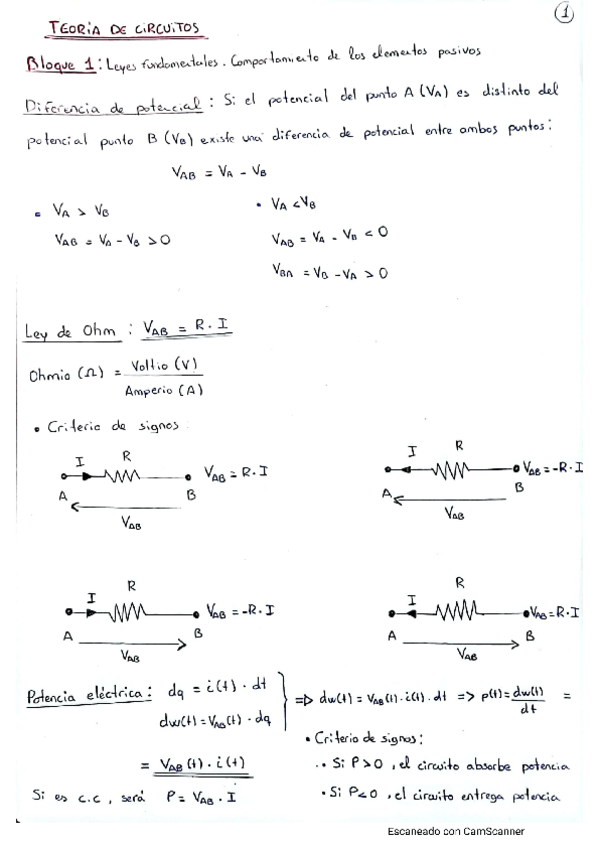 1
TEORIA DE CIRCUITOS
Bloque 1: Leyes fundamentales. Comportamiento de los elementos pasivos
Diferencia de potencial: Si el potencial del punto A (VA) es distinto del
potencial punto B (VB) existe una diferencia de potencial entre ambos puntos:
VAB = VA - VB
• VA > VB
VAB = VA - VB > 0
• VA < VB
VAB = VA - VB < 0
VBA = VB - VA > 0
Ley de Ohm: VAB = R · I
Ohmio (Ω) = Voltio (V) / Amperio (A)
• Criterio de signos
I R
A B VAB = R · I
VAB
I R
A B VAB = -R · I
VAB
I R
A B VAB = -R · I
VAB
I R
A B VAB = R · I
VAB
Potencia eléctrica: dq = i(t) · dt
dw(t) = VAB(t) · dq
=> dw(t) = VAB(t) · i(t) · dt => p(t) = dw(t)/dt =
= VAB(t) · i(t)
Si es c.c, será P = VAB · I
• Criterio de signos:
·• Si P>0, el circuito absorbe potencia
• Si P<0, el circuito entrega potencia
Escaneado con CamScanner